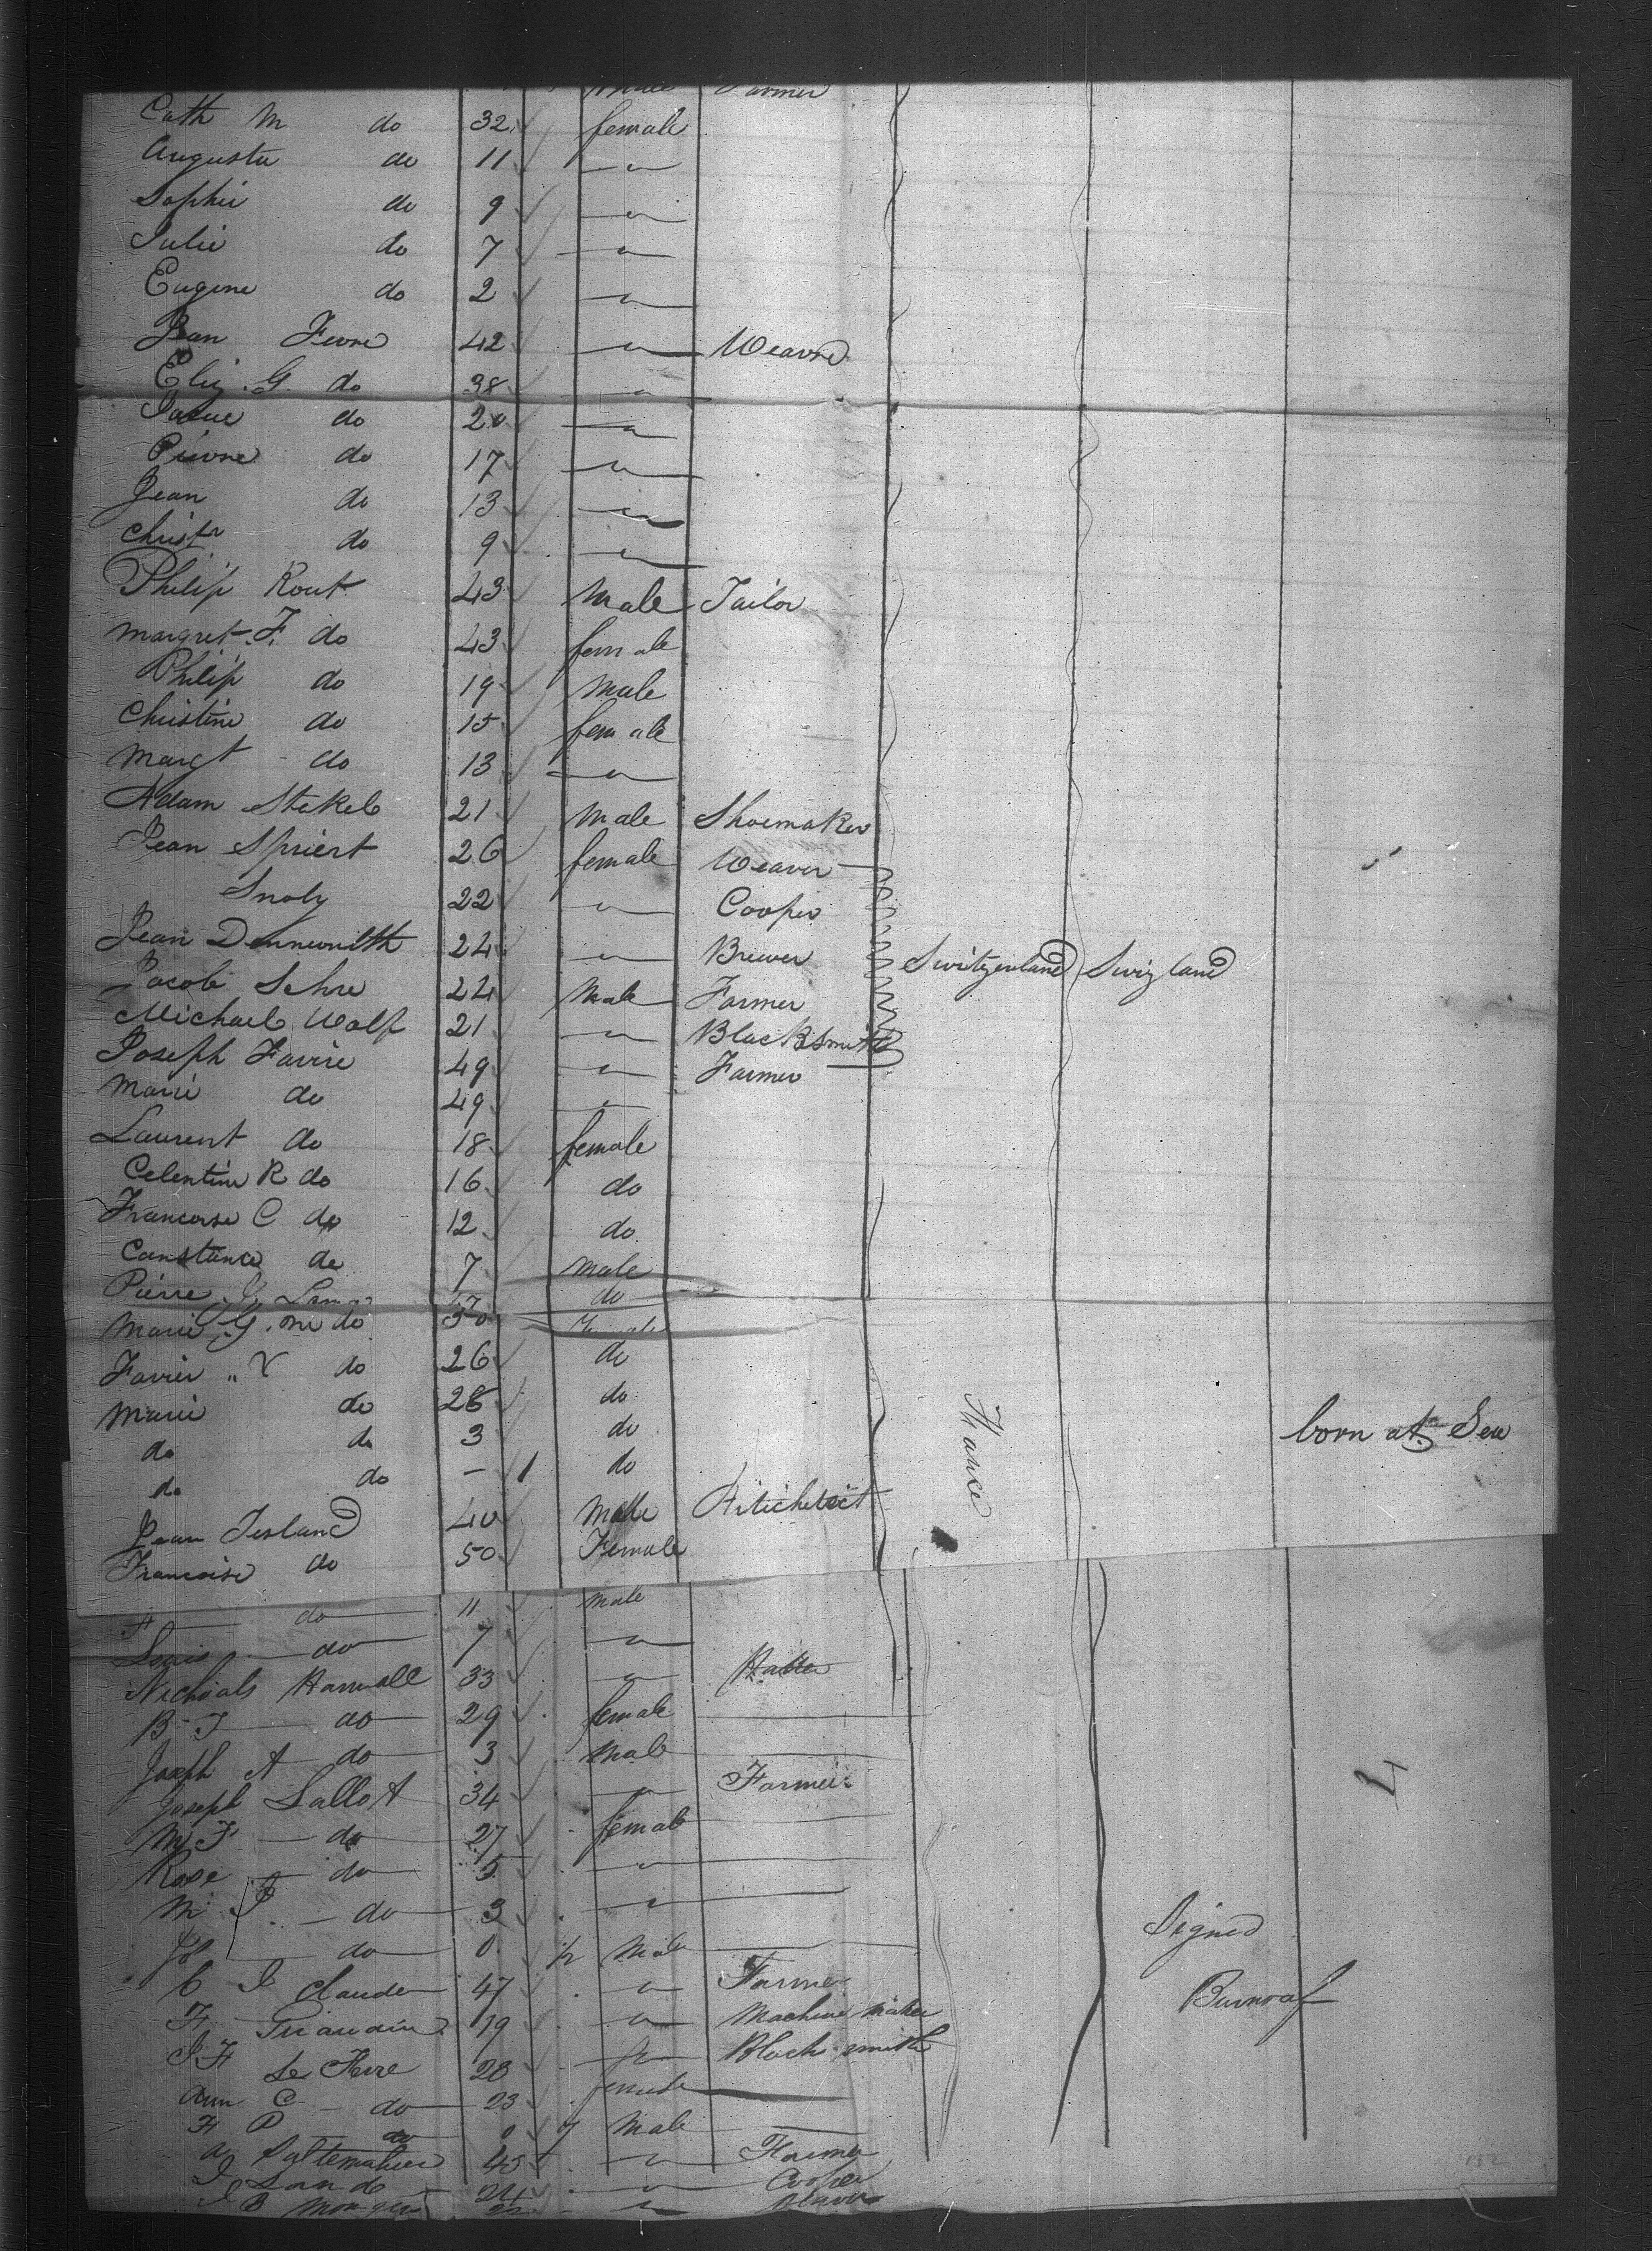 male Farmer
Cath M do 32 female
Augusta do 11 "
Sophie do 9 "
Julie do 7 "
Eugene do 2 "
Jean Fevre 42 " Weaver
Eliz. G. do 38 "
do 20 "
Pierre do 17 "
Jean do 13 "
Christn do 9 "
Philip Rout 43 Male Tailor
Margret F. do 43 female
Philip do 19 Male
Christine do 15 female
Margt do 13 "
Adam Stekel 21 Male Shoemaker
Jean Spriert 26 female Weaver
22 " Cooper
Jean 24 " Brewer
Switzerland Swizland
Jacob Sehre 24 Male Farmer
Michael Wolf 21 " Blacksmith
Joseph Favire 49 " Farmer
Marie do 49 "
Laurent do 18 female
Celentine R do 16 do
Francoise C do 12 do
Constance do 7 male
Pierre do
Marie G. do 50 female
Favier " V do 26 do
Marie do 26 do
do do 3 do
do do – 1 do born at Sea
France
Jean 40 Male Artichetect
Francoise do 50 Female
F do 11 male
Louis do 7 "
Nicholals Hanvall 33 " Hatter
B J do 29 female
Joseph A do 3 Male
Joseph Sallot 34 " Farmer
4
M F do 27 female
Rose do 5 "
M J do 3 "
do 0 Male
Signed
C J Claude 47 " Farmer
F 19 " Machine maker
J F Le Ferre 28 " Black smith
Ann C do 23 female
F P do 0 7 Male
A 45 " Farmer
J 24 " Cooper
J B "
132